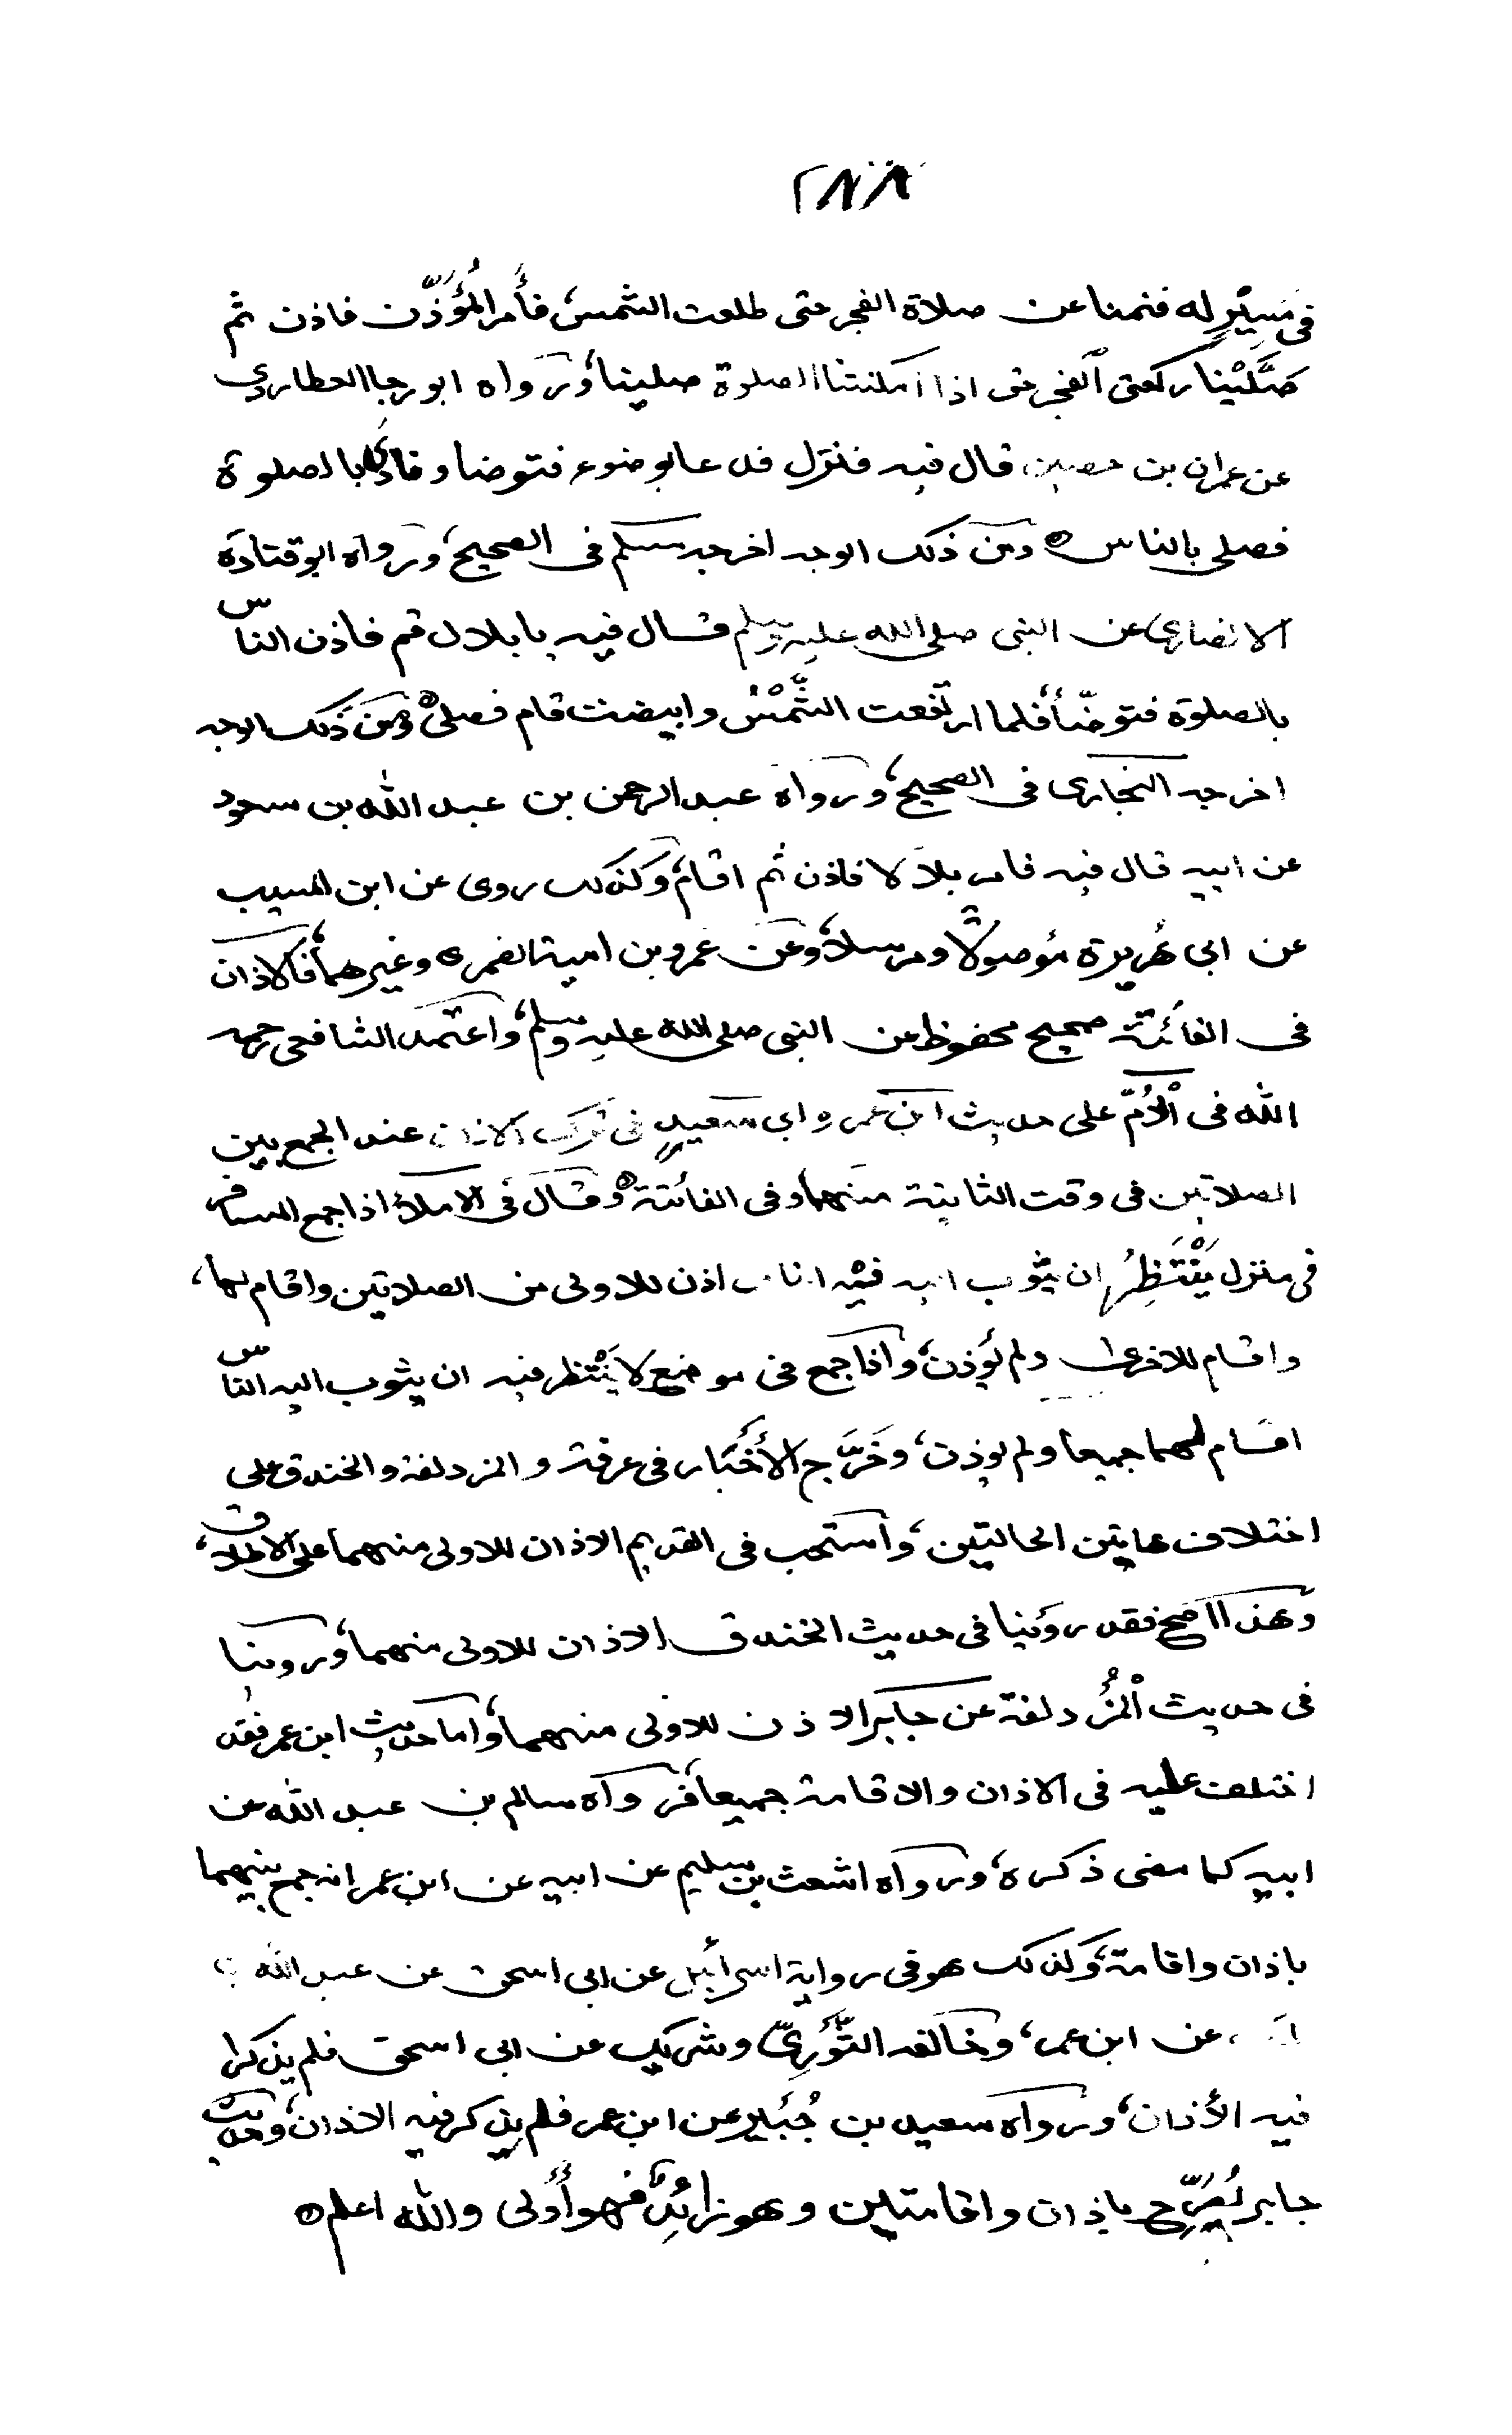 ٢٨٨
فى مَسِيْرٍ له فنمنا عن صلاة الفجر حتى طلعت الشمس، فأمر المُؤَذِّن فاذن ثم
صَلَّيْنا ركعتى الفجر حتى اذا امكنتنا الصلوة صلينا، ورواه ابو رجا العطاردي
عن عمران بن حصين قال فيه فنزل فدعا بوضوء فتوضا ونادى بالصلوة
فصلى بالناس ه ومن ذلك الوجه اخرجه مسلم فى الصحيح، ورواه ابو قتادة
الانصارى عن النبى صلى الله عليه وسلم قال فيه يا بلال قم فاذن الناس
بالصلوة فتوضّأ، فلما ارتفعت الشَّمْس وابيضت قام فصلى ه ومن ذلك الوجه
اخرجه البخارى فى الصحيح، ورواه عبد الرحمن بن عبد الله بن مسعود
عن ابيه قال فيه فامر بلالا فاذن ثم اقام، وكذلك روى عن ابن المسيب
عن ابى هُريرة مُوصولًا ومرسلًا، وعن عمرو بن امية الضمرى وغيرهما، فالاذان
فى الفائتة صحيح محفوظ عن النبى صلى الله عليه وسلم، واعتمد الشافعى رحمه
الله فى الْأُمِّ على حديث ابن عمر وابى سعيدٍ فى ترك الاذان عند الجمع بين
الصلاتين فى وقت الثانية منهما وفى الفائتة ه وقال فى الاملاء اذا جمع المسافر
فى منزل يَنْتَظِرُ ان يثوب اليه فيه الناس اذن للاولى من الصلاتين واقام لها،
واقام للاخرى ولم يُؤذن، واذا جمع فى موضع لا يَنْتظر فيه ان يثوب اليه الناس
اقام لهما جميعا ولم يوذن، وخَرَّج الأَخْبَار فى عرفة والمزدلفة والخندق على
اختلاف هاتين الحالتين، واستحب فى القديم الاذان للاولى منهما على الاطلاق،
وهذا اصح فقد روينا فى حديث الخندق الاذان للاولى منهما، وروينا
فى حديث الْمُزدلفة عن جابر الاذن للاولى منهما، واما حديث ابن عمر فقد
اختلف عليه فى الاذان والاقامة جميعا، فرواه سالم بن عبد الله عن
ابيه كما مضى ذكره، ورواه اشعث بن سليم عن ابيه عن ابن عمر انه جمع بينهما
باذان واقامة، وكذلك هو فى رواية اسرائيل عن ابى اسحق عن عبد الله
عن ابن عمر، وخالفه الثَّوْرِيّ وشريك عن ابى اسحق فلم يذكرا
فيه الأذان، ورواه سعيد بن جُبَيرٍ عن ابن عمر فلم يذكر فيه الاذان، وحديث
جابر يُصَرِّح باذان واقامتين وهو زائدٌ، فهو أَوْلى والله اعلم ه